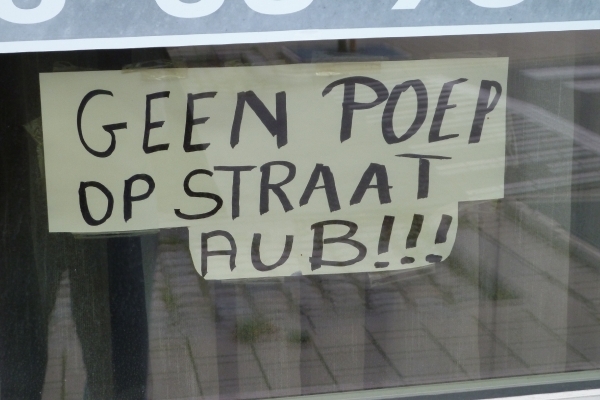 GEEN POEP
OP STRAAT
AUB!!!